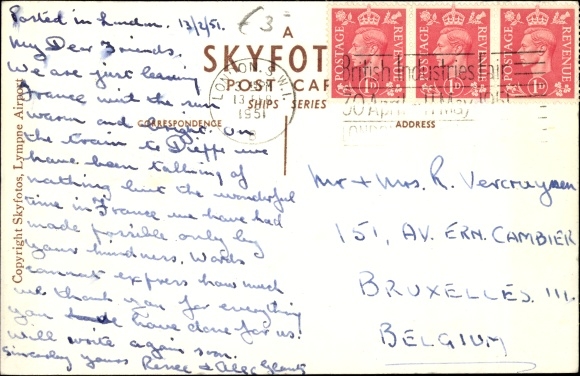 Posted in London. 13/2/51.
€3
My Dear Friends,
We are just leaving
France with the sun
warm and bright. On
the train to Dieppe we
have been talking of
nothing but the wonderful
time in France we have had
made possible only by
your kindness. Words
cannot express how much
we thank you for everything
you have done for us.
Will write again soon.
Sincerely yours Renee & Alec
A
SKYFOTO
POST CAR
SHIPS SERIES
CORRESPONDENCE
ADDRESS
Copyright Skyfotos, Lympne Airport
LONDON. S.W.1.
13
1951
British Industries Fair
30 April - 11 May 1951
POSTAGE REVENUE
1D
POSTAGE REVENUE
1D
POSTAGE REVENUE
1D
Mr + Mrs. R. Vercruyssen
151, AV. ERN. CAMBIER
BRUXELLES III.
BELGIUM